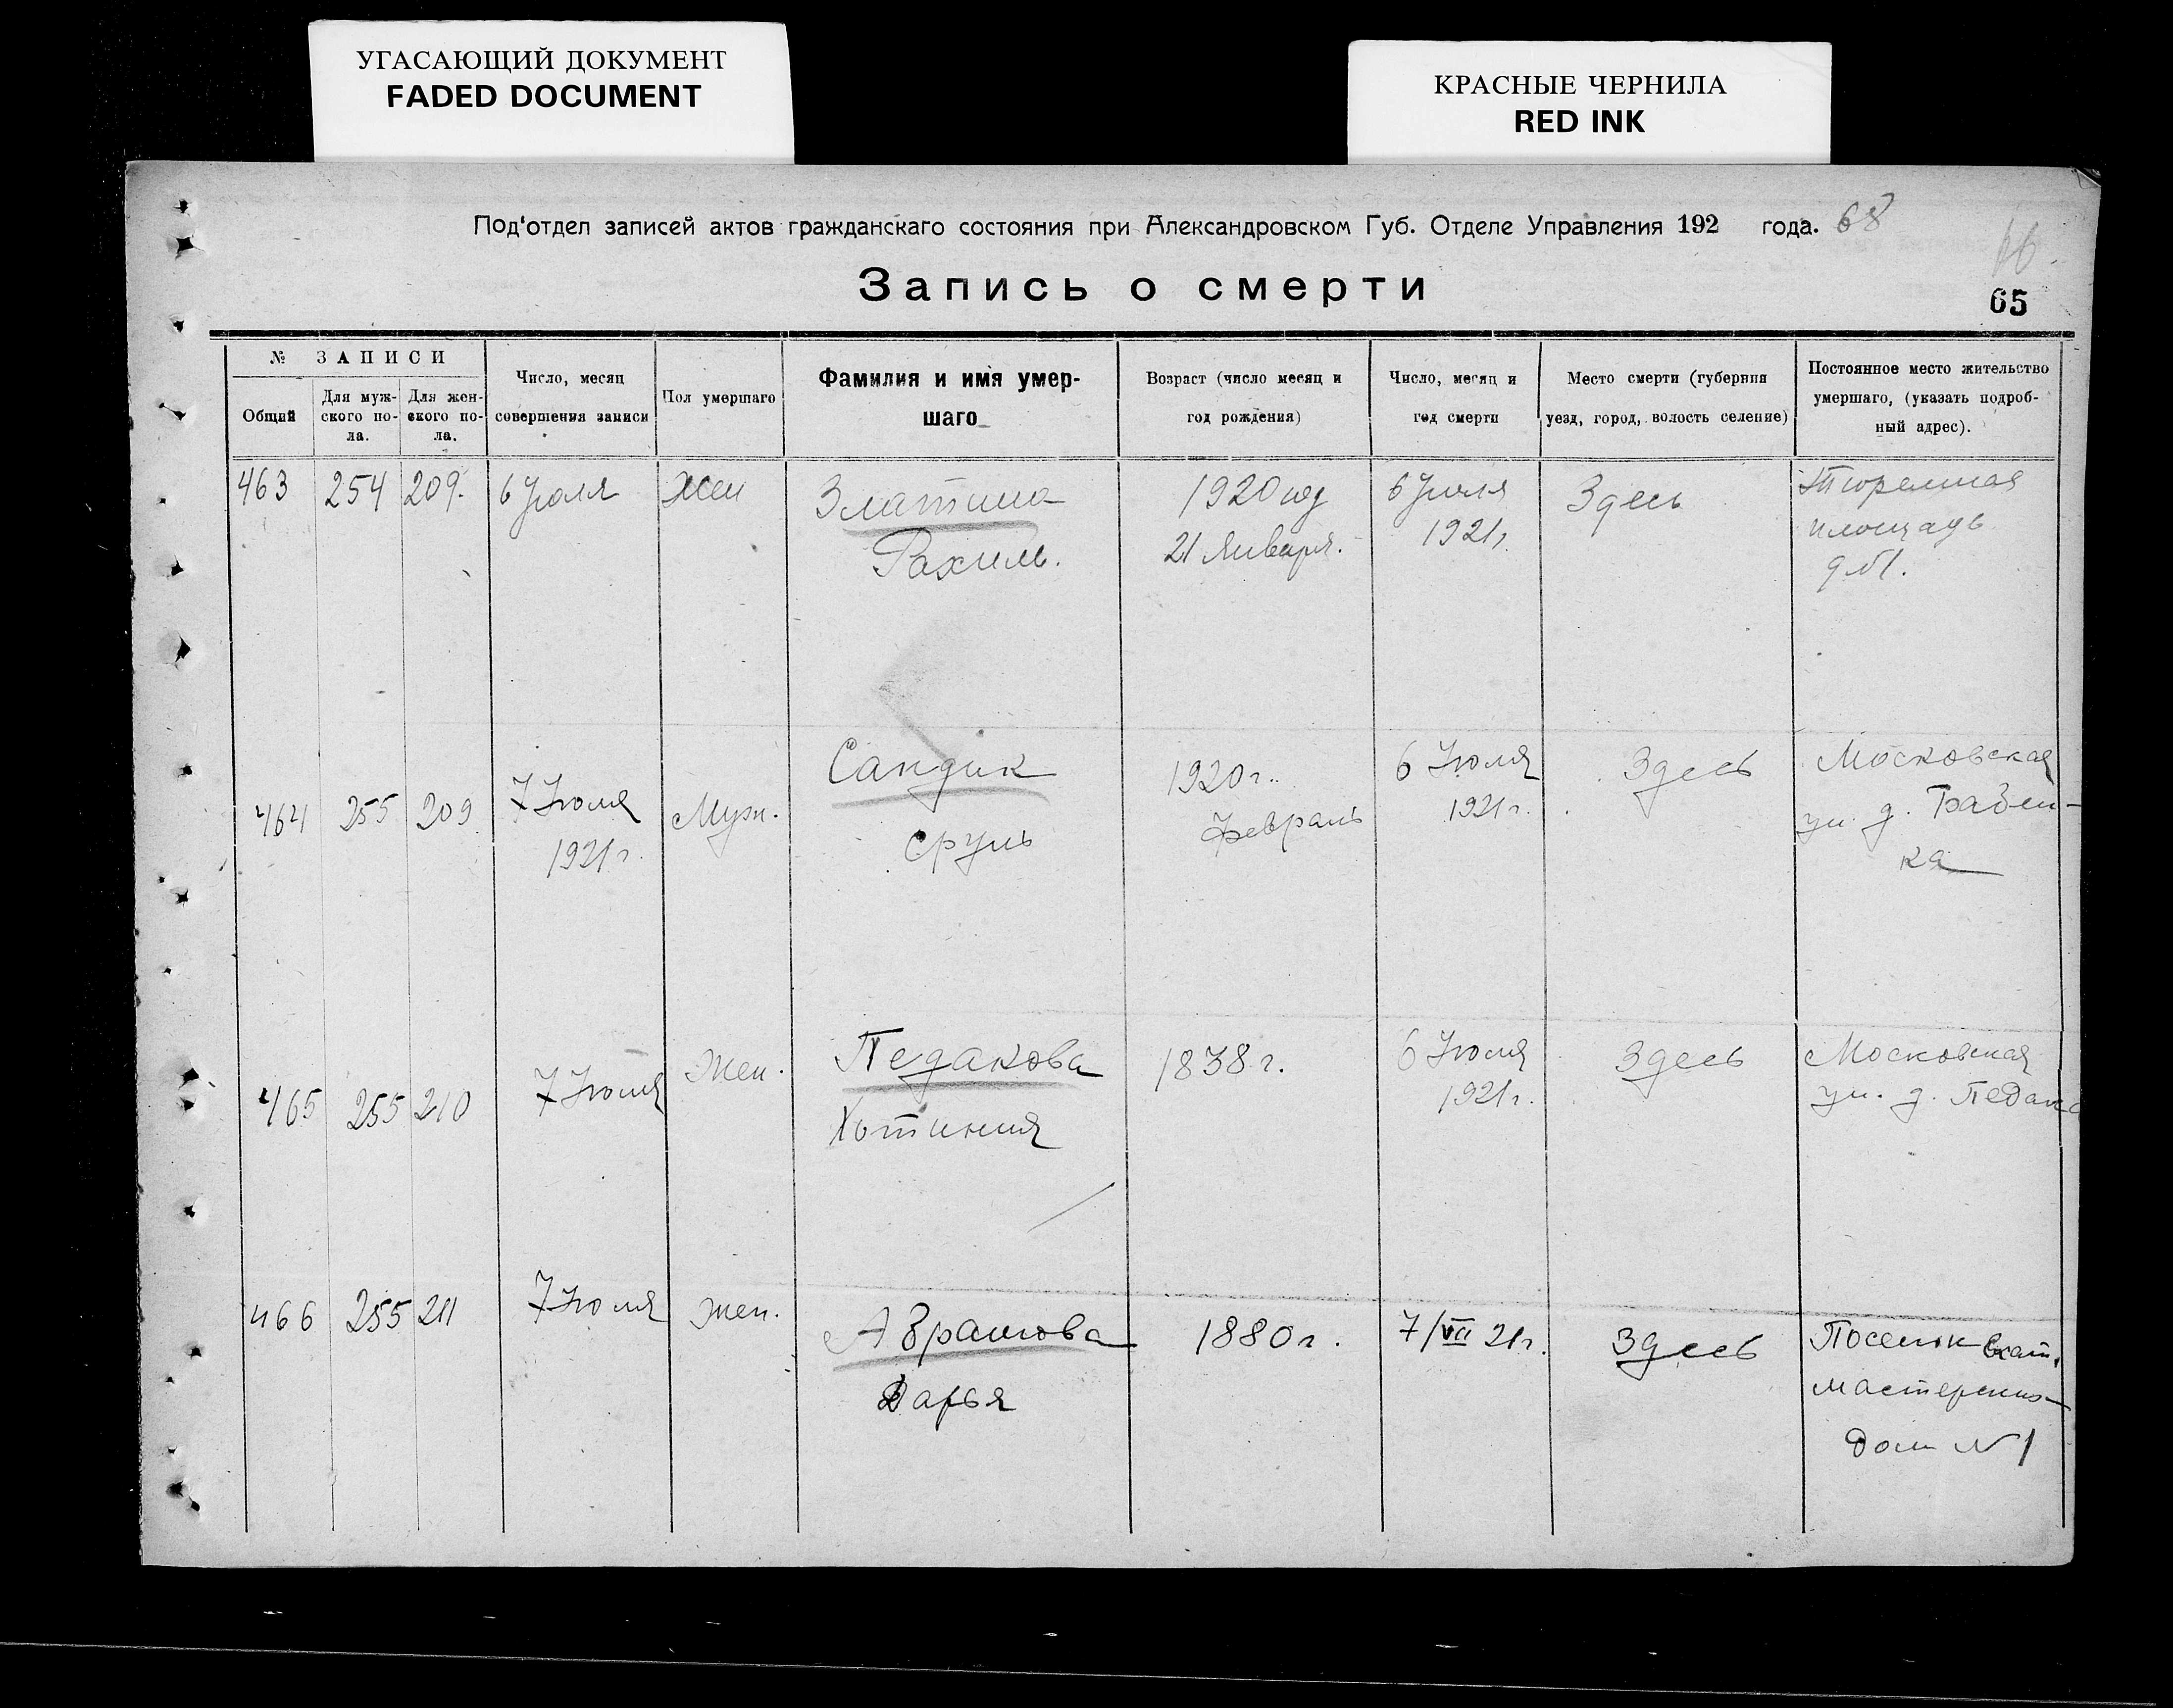 УГАСАЮЩИЙ ДОКУМЕНТ
FADED DOCUMENT
КРАСНЫЕ ЧЕРНИЛА
RED INK
Под'отдел записей актов гражданскаго состояния при Александровском Губ. Отделе Управления 192 года. 68
66
Запись о смерти
65
№ ЗАПИСИ
Общий
Для муж-
ского по-
ла.
Для жен-
ского по-
ла.
Число, месяц
совершения записи
Пол умершаго
Фамилия и имя умер-
шаго
Возраст (число месяц и
год рождения)
Число, месяц и
год смерти
Место смерти (губерния
уезд, город, волость селение)
Постоянное место жительство
умершаго, (указать подроб-
ный адрес).
463 254 209. 6 Июля Жен
Златина
Рахиль.
1920 год
21 Января.
6 Июля
1921г.
Здесь
Тюремная
площадь
д №1.
464 255 209
7 Июля
1921г.
Муж.
Сандик
Сруль
1920г.
Февраль
6 Июля
1921г.
Здесь
Московская
ул. д. Бабен-
ка
465 255 210 7 Июля Жен.
Педакова
Хотиния
1838 г.
6 Июля
1921г.
Здесь
Московская
ул. д. Педако
466 255 211 7 Июля жен.
Абрамова
Дарья
1880г.
7/VII 21г.
Здесь
Поселок Екат.
мастерских
Дом № 1